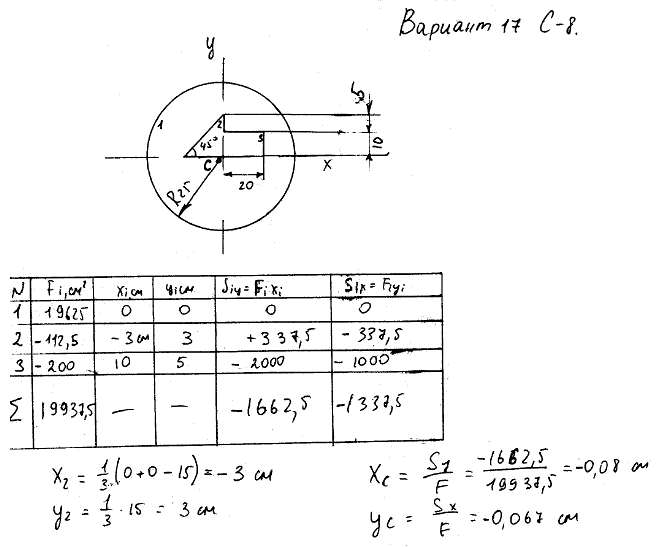 Вариант 17 С-8.
y
5
1
2
3
45°
10
C
x
20
R25
N Fi, см² xi, см yi см Siy = Fi xi Six = Fi yi
1 19625 0 0 0 0
2 -112,5 -3 см 3 +337,5 -337,5
3 -200 10 5 -2000 -1000
Σ 19937,5 — — -1662,5 -1337,5
X2 = 1/3 (0+0-15) = -3 см
y2 = 1/3 · 15 = 3 см
Xc = Sy/F = -1662,5/19937,5 = -0,08 см
yc = Sx/F = -0,067 см